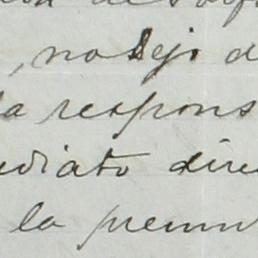 , no dejo d
la respons
ediato dire
la premu